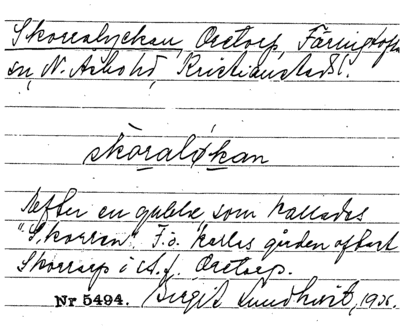 Skorralyckan, Oretorp, Färingtofta
sn, N. Åsbohd, Kristianstads l.
skòraløkan
Efter en gubbe som kallades
"Skorren". F.ö. kallas gården oftast
Skorrarp i st. f. Oretorp.
Nr 5494. Birgit Lundkvist, 1936.